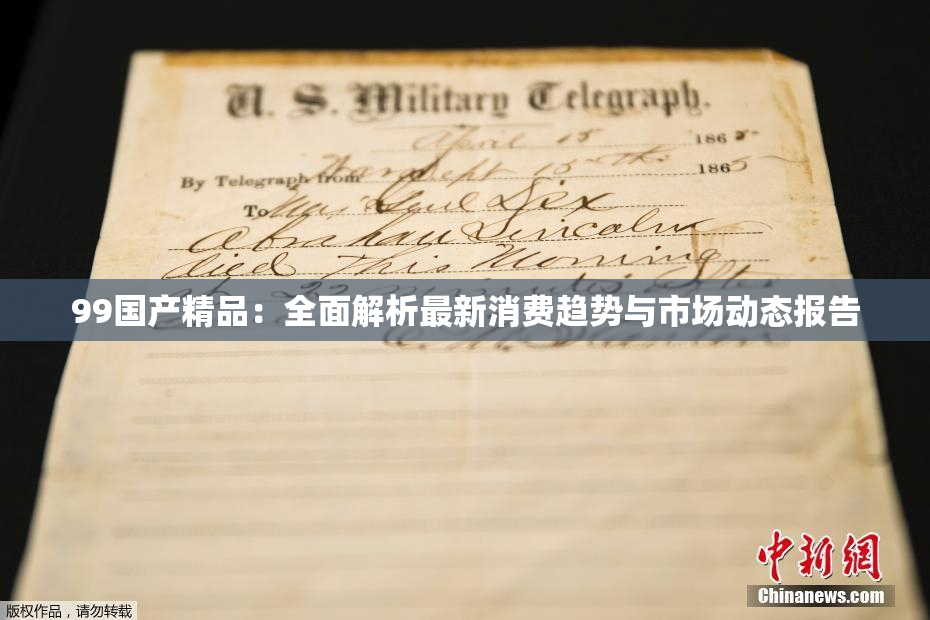 U. S. Military Telegraph.
April 15 1865
By Telegraph from War Dept 15th 1865
To Maj Genl Dix
Abraham Lincoln
died This Morning
at 22 minutes after
99国产精品：全面解析最新消费趋势与市场动态报告
E. M. Stanton
中新网
Chinanews.com
版权作品，请勿转载